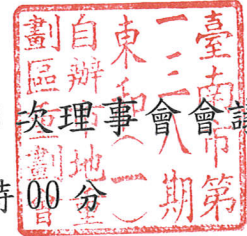 臺南市第
一三八期
東和(一)
自辦市地重
劃區重劃會
次理事會會議
時00分